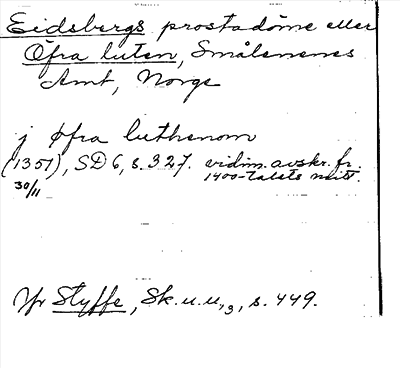 Eidsbergs prostadöme eller
Öfra luten, Smålenenes
Amt, Norge
j øfra luthenom
(1351), SD 6, s. 327. vidim. avskr. fr.
30/11 1400-talets mitt.
Jfr Styffe, Sk. u. u., 3, s. 449.